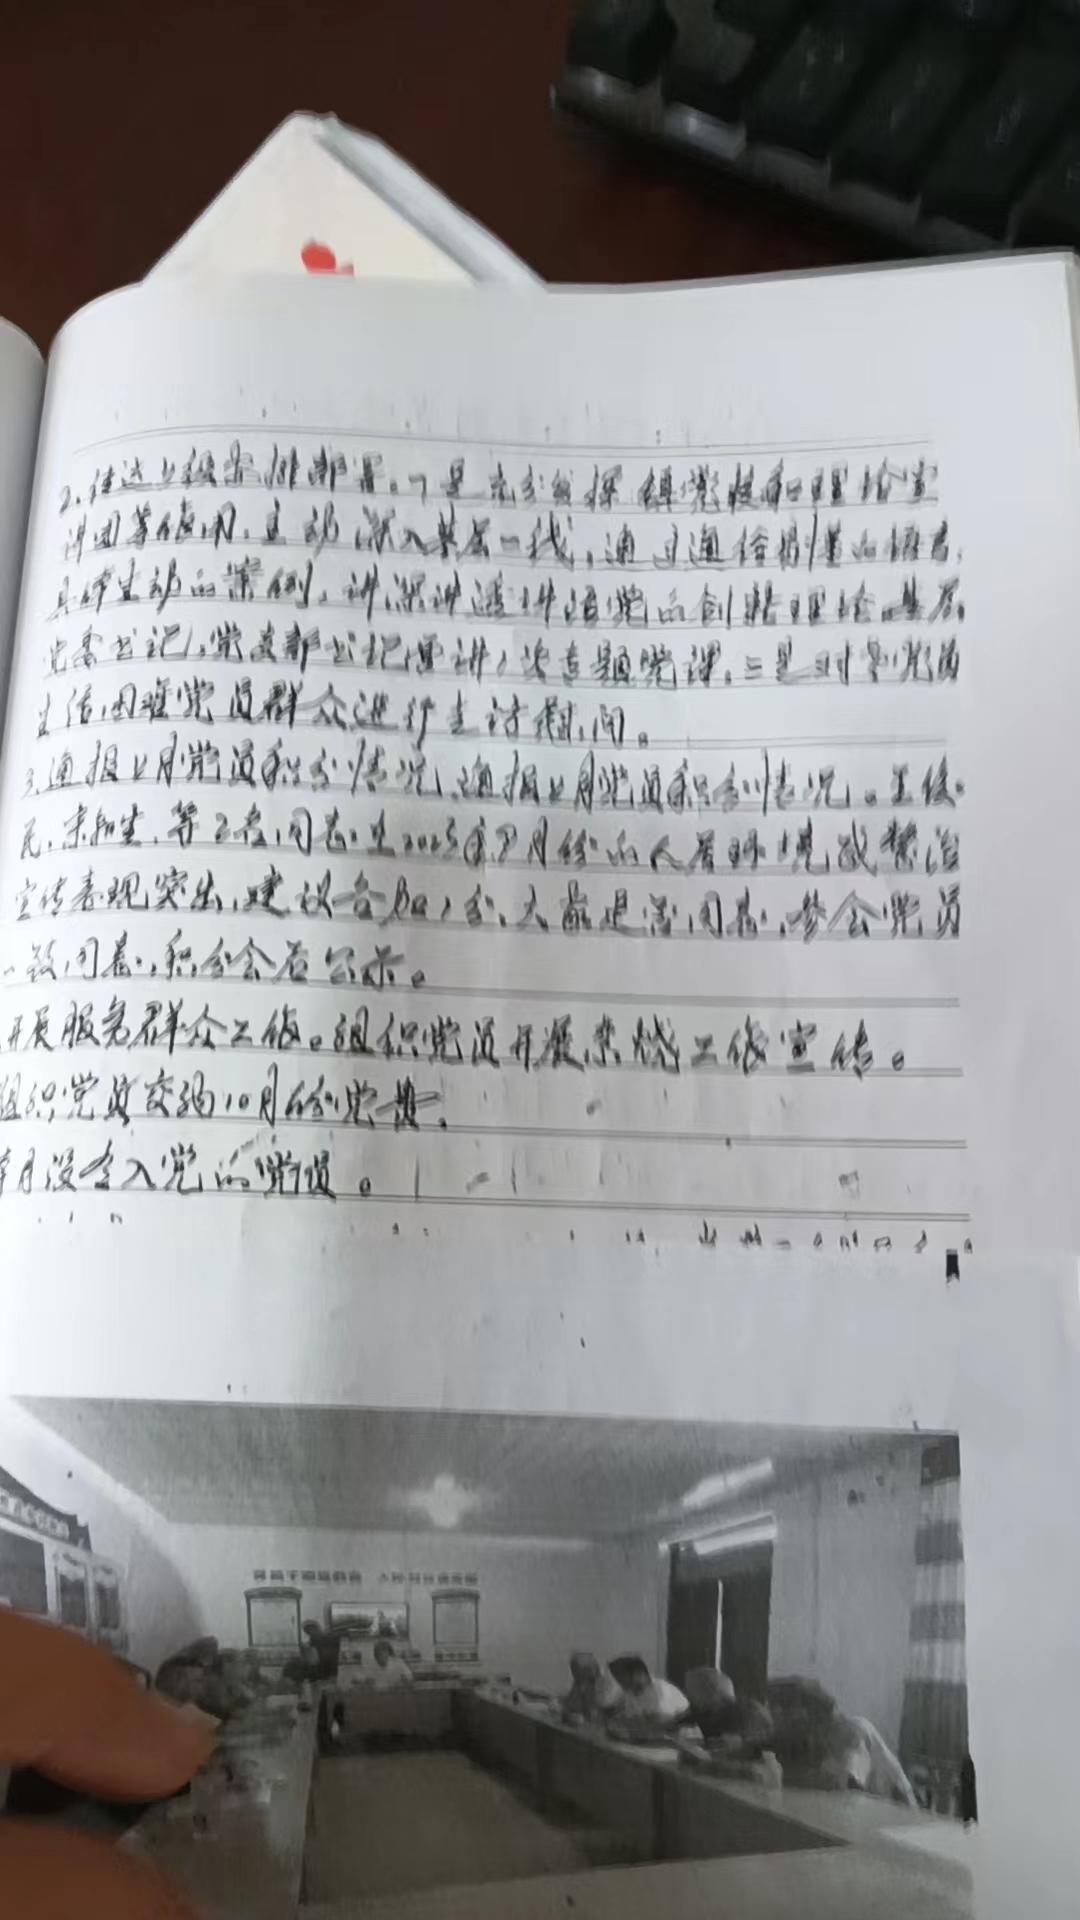 2.传达上级安排部署。一是充分发挥镇党校和理论宣
讲团等作用,主动深入基层一线,通过通俗易懂的语言,
具体生动的案例,讲深讲透讲活党的创新理论。基层
党委书记,党支部书记要讲1次专题党课,三是对老党员
生活困难党员群众进行走访慰问。
3.通报上月党员积分情况,通报上月党员积分情况。王俊
民, 等2名同志在2025年9月份的人居环境整治
宣传表现突出,建议各加1分,大家是否同意,参会党员
一致同意,积分会后公示。
开展服务群众工作。组织党员开展禁烧工作宣传。
组织党员交纳10月份党费。
本月没有入党的党员。